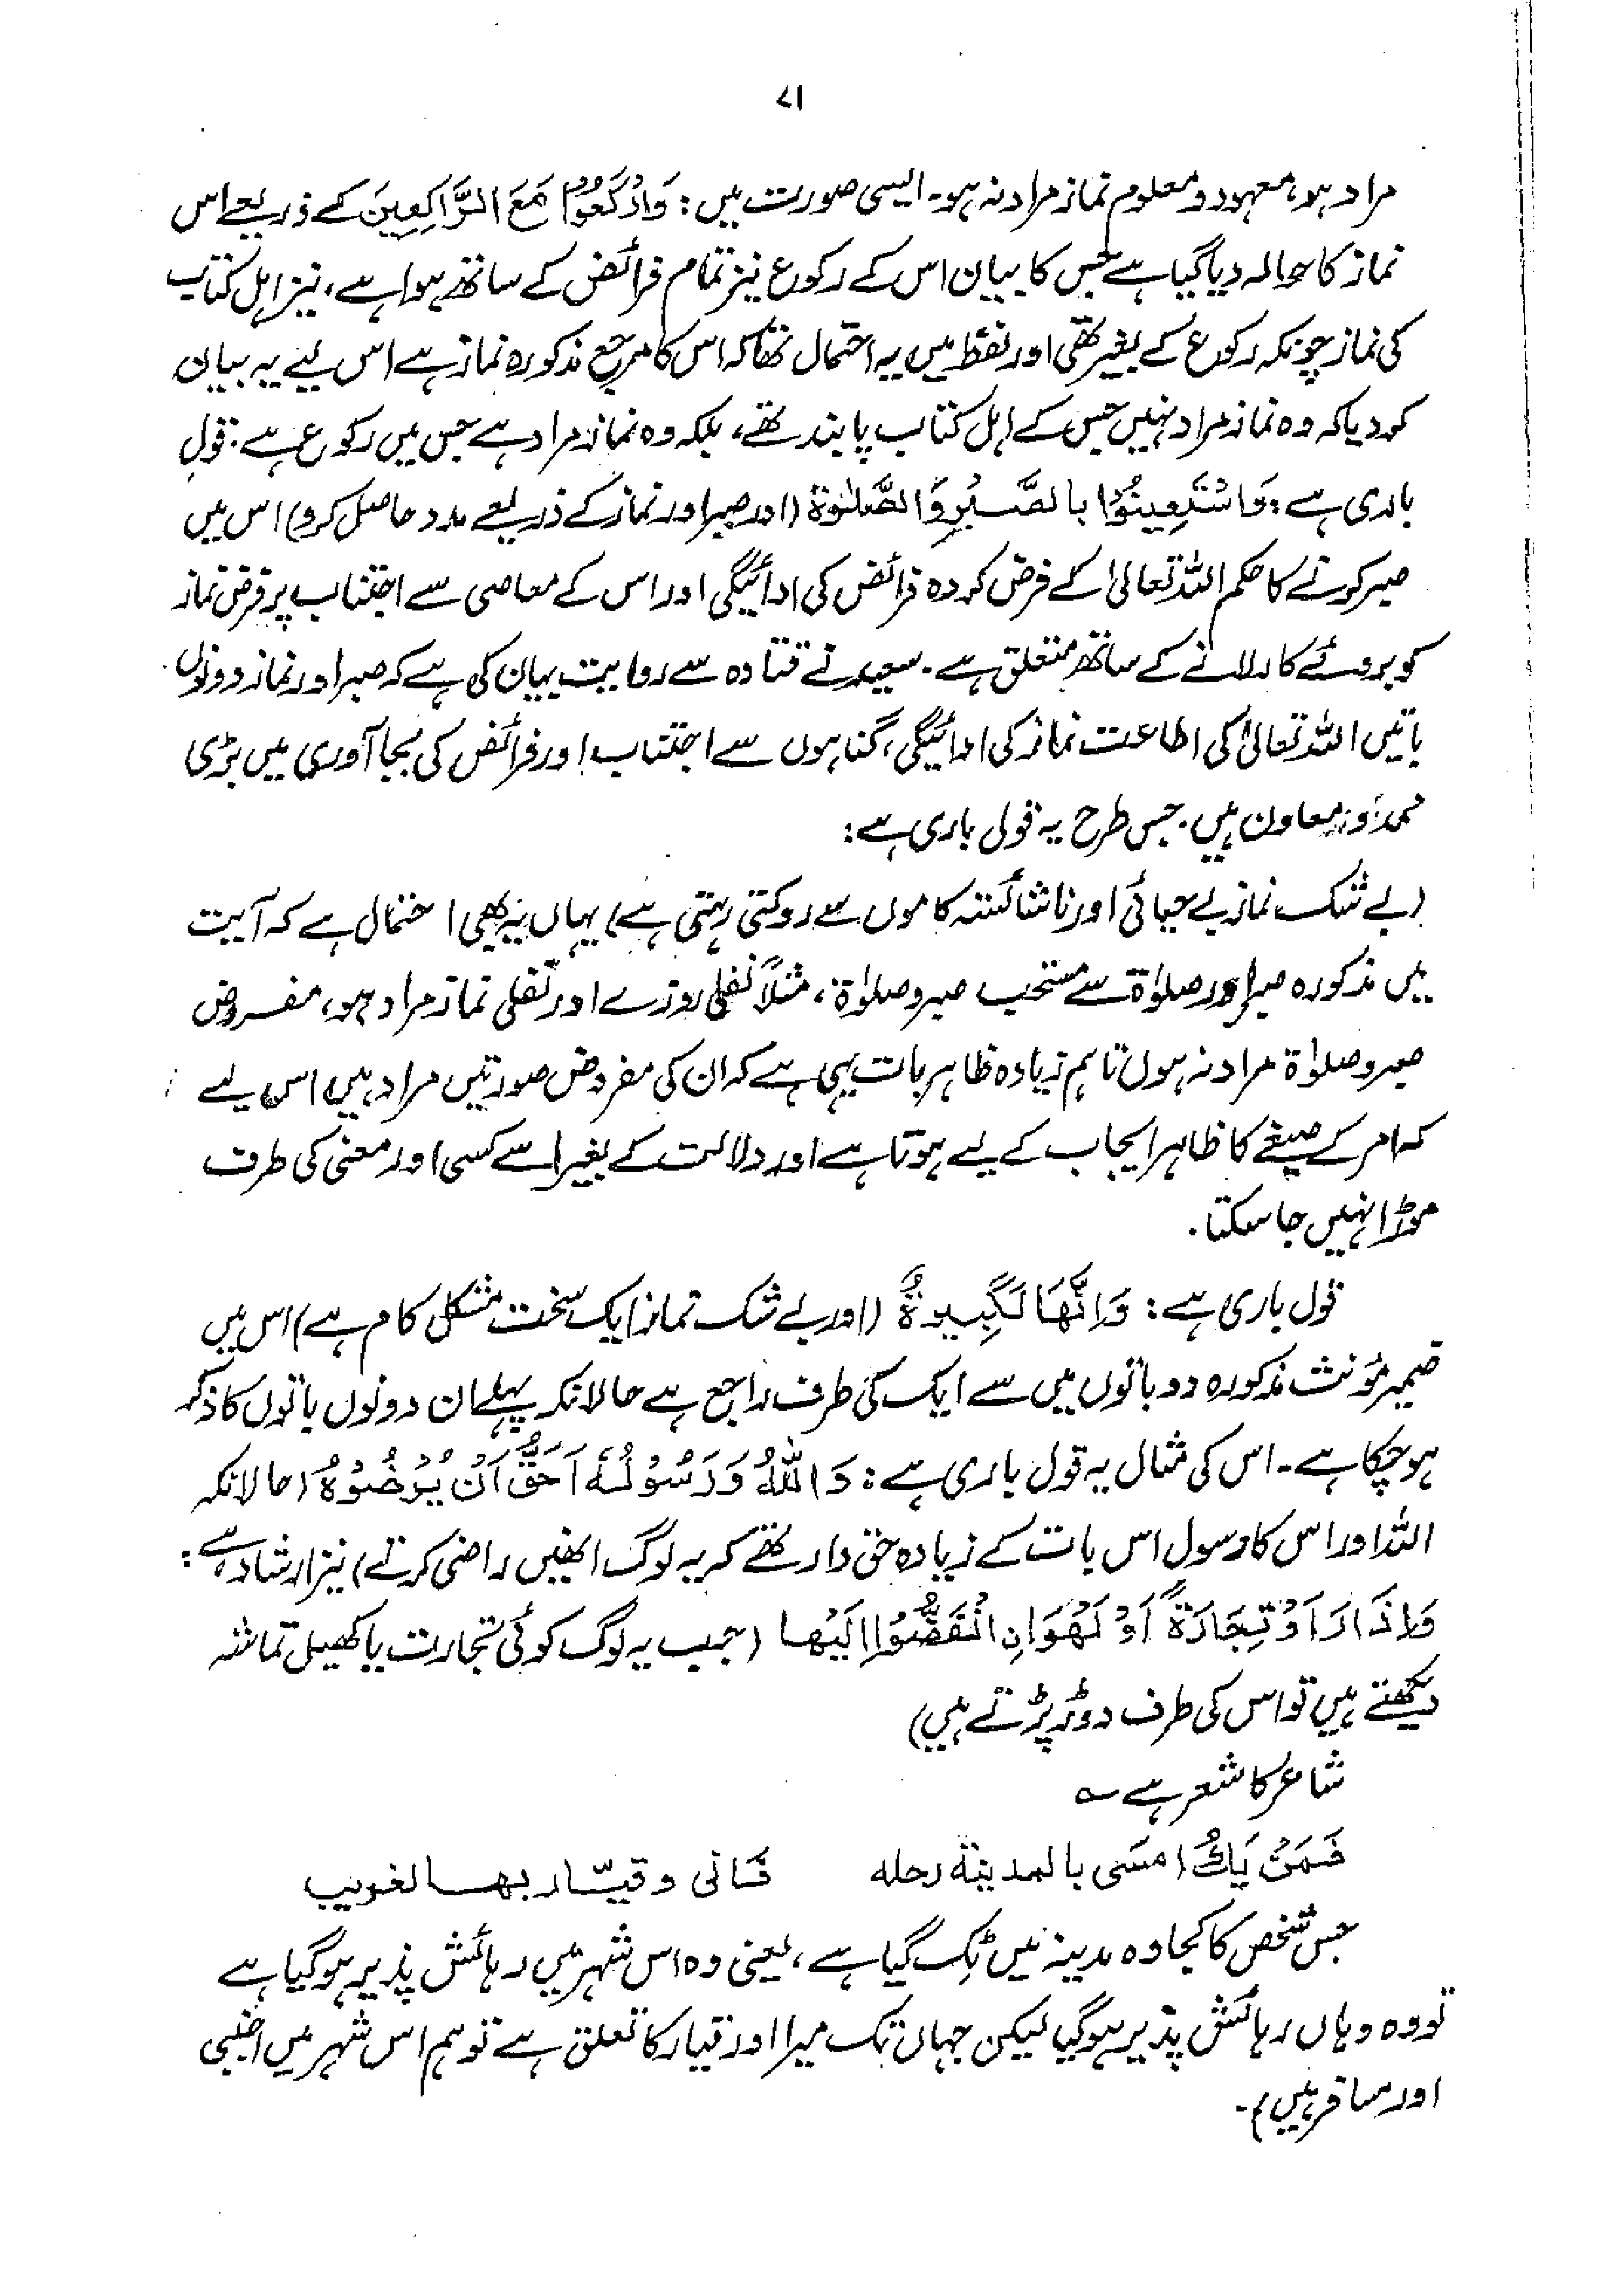 ۷۱
مراد ہو، معہود و معلوم نماز مراد نہ ہو۔ ایسی صورت میں: وَارْكَعُوْا مَعَ الرَّاكِعِينَ کے ذریعے اس
نماز کا حوالہ دیا گیا ہے جس کا بیان اس کے رکوع نیز تمام فرائض کے ساتھ ہوا ہے، نیز اہل کتاب
کی نماز چونکہ رکوع کے بغیر تھی اور لفظ میں یہ احتمال تھا کہ اس کا مرجع مذکورہ نماز ہے اس لیے یہ بیان
کر دیا کہ وہ نماز مراد نہیں جس کے اہل کتاب پابند تھے، بلکہ وہ نماز مراد ہے جس میں رکوع ہے: قول
باری ہے: وَاسْتَعِينُوْا بالصَّبْرِ وَالصَّلٰوۃ (اور صبر اور نماز کے ذریعے مدد حاصل کرو) اس میں
صبر کرنے کا حکم اللہ تعالیٰ کے فرض کردہ فرائض کی ادائیگی اور اس کے معاصی سے اجتناب پر فرض نماز
کو بروئے کار لانے کے ساتھ متعلق ہے۔ سعید نے قتادہ سے روایت بیان کی ہے کہ صبر اور نماز دونوں
باتیں اللہ تعالیٰ کی اطاعت نماز کی ادائیگی، گناہوں سے اجتناب اور فرائض کی بجا آوری میں بڑی
ممد اور معاون ہیں۔ جس طرح یہ قول باری ہے:
(بے شک نماز بے حیائی اور ناشائستہ کاموں سے روکتی رہتی ہے) یہاں یہ بھی احتمال ہے کہ آیت
میں مذکورہ صبر اور صلوٰۃ سے مستحب صبر و صلوٰۃ، مثلاً نفلی روزے اور نفلی نماز مراد ہو، مفروض
صبر و صلوٰۃ مراد نہ ہوں تاہم زیادہ ظاہر بات یہی ہے کہ ان کی مفروض صورتیں مراد ہیں اس لیے
کہ امر کے صیغے کا ظاہر ایجاب کے لیے ہوتا ہے اور دلالت کے بغیر اسے کسی اور معنی کی طرف
موڑا نہیں جا سکتا۔
قول باری ہے: وَاِنَّهَا لَكَبِيرَةٌ (اور بے شک نماز ایک سخت مشکل کام ہے) اس میں
ضمیر مؤنث مذکورہ دو باتوں میں سے ایک کی طرف راجع ہے حالانکہ پہلے ان دونوں باتوں کا ذکر
ہو چکا ہے۔ اس کی مثال یہ قول باری ہے: وَاللّٰهُ وَرَسُوْلُهٗ اَحَقُّ اَنْ يُّرْضُوْهُ (حالانکہ
اللہ اور اس کا رسول اس بات کے زیادہ حق دار تھے کہ یہ لوگ انھیں راضی کرتے) نیز ارشاد ہے:
وَاِذَا رَاَوْ تِجَارَةً اَوْ لَهْوَانِ انْفَضُّوْا اِلَيْها (جب یہ لوگ کوئی تجارت یا کھیل تماشہ
دیکھتے ہیں تو اس کی طرف دوڑ پڑتے ہیں)
شاعر کا شعر ہے ؎
فَمَنْ يَكُ امسَى بالمدينة رحله فَانى وقيّار بها لغريب
جس شخص کا کجاوہ مدینہ میں ٹِک گیا ہے، یعنی وہ اس شہر میں رہائش پذیر ہو گیا ہے
تو وہ وہاں رہائش پذیر ہو گیا لیکن جہاں تک میرا اور قیار کا تعلق ہے تو ہم اس شہر میں اجنبی
اور مسافر ہیں)۔